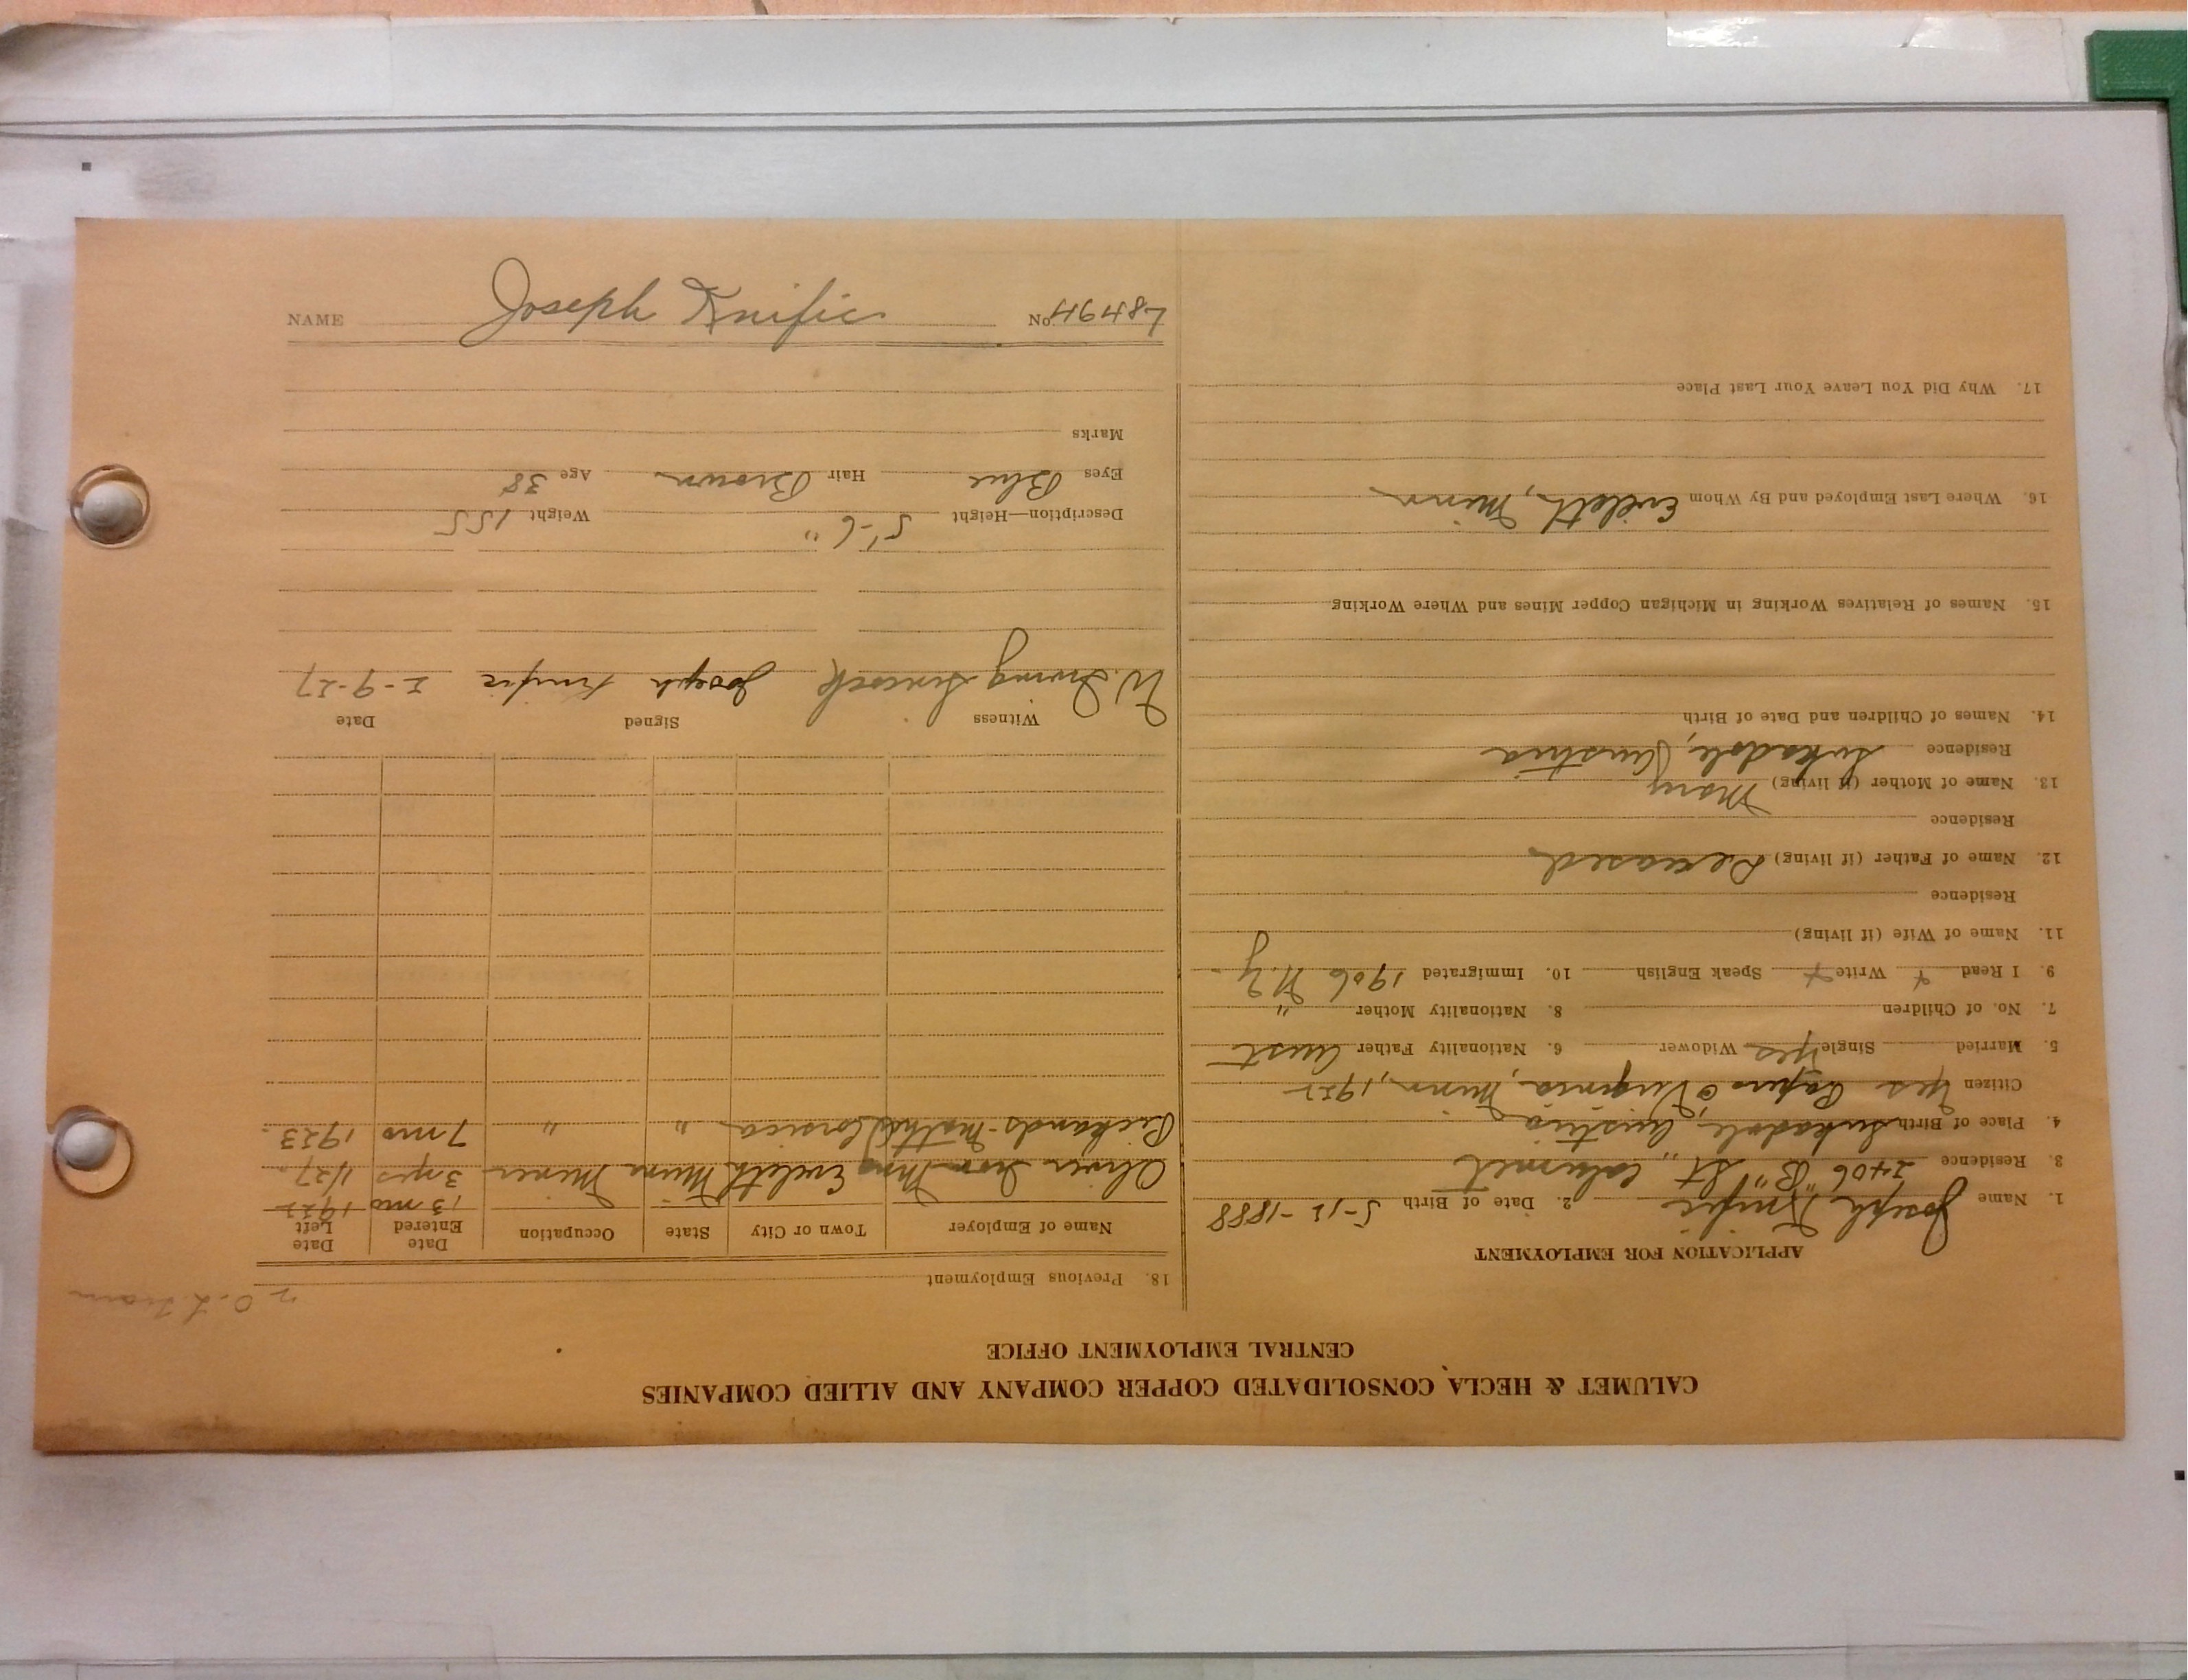 CALUMET & HECLA CONSOLIDATED COPPER COMPANY AND ALLIED COMPANIES
CENTRAL EMPLOYMENT OFFICE
APPLICATION FOR EMPLOYMENT
1. Name Joseph Knific 2. Date of Birth 5-12-1888
3. Residence 2406 "B" St., Calumet
4. Place of Birth Austria
Citizen Yes Papers Virginia, Minn, 1922
5. Married Single Yes Widower 6. Nationality Father Aust
7. No. of Children 8. Nationality Mother "
9. I Read + Write + Speak English 10. Immigrated 1906 N.Y.
11. Name of Wife (if living)
Residence
12. Name of Father (if living) Deceased
Residence
13. Name of Mother (if living) Mary
Residence Austria
14. Names of Children and Date of Birth
15. Names of Relatives Working in Michigan Copper Mines and Where Working
16. Where Last Employed and By Whom Eveleth, Minn
17. Why Did You Leave Your Last Place
18. Previous Employment
Name of Employer Town or City State Occupation Date Entered Date Left
13 mo 1922
Oliver Iron Mng Eveleth Minn Miner 3 yrs 1/27
Pickands-Mather Corsica " " 7 mo 1923
Witness Signed Date
W. Irving Joseph Knific 2-9-27
Description—Height 5'-6" Weight 155
Eyes Blue Hair Brown Age 38
Marks
NAME Joseph Knific No.